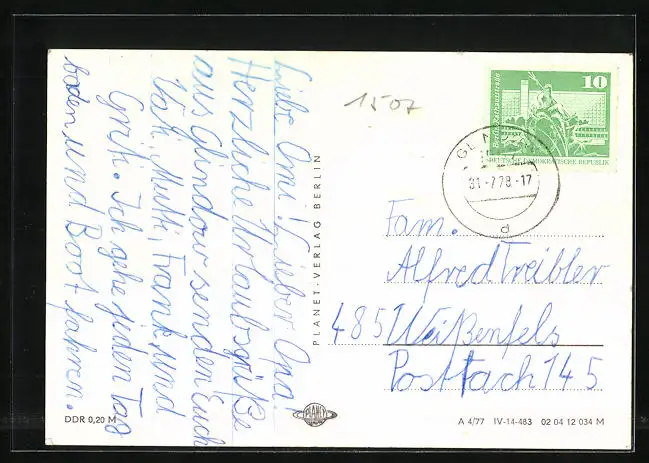 Liebe Omi! Lieber Opa!
Herzliche Urlaubsgrüße
aus Glindow senden Euch
Vati, Mutti, Frank und
Grit. Ich gehe jeden Tag
baden und Boot fahren.
1507
PLANET-VERLAG BERLIN
10
DEUTSCHE DEMOKRATISCHE REPUBLIK
31.-7.78.-17
Fam.
Alfred Treibler
485 Weißenfels
Postfach 145
DDR 0,20 M
PLANET
A 4/77 IV-14-483 02 04 12 034 M